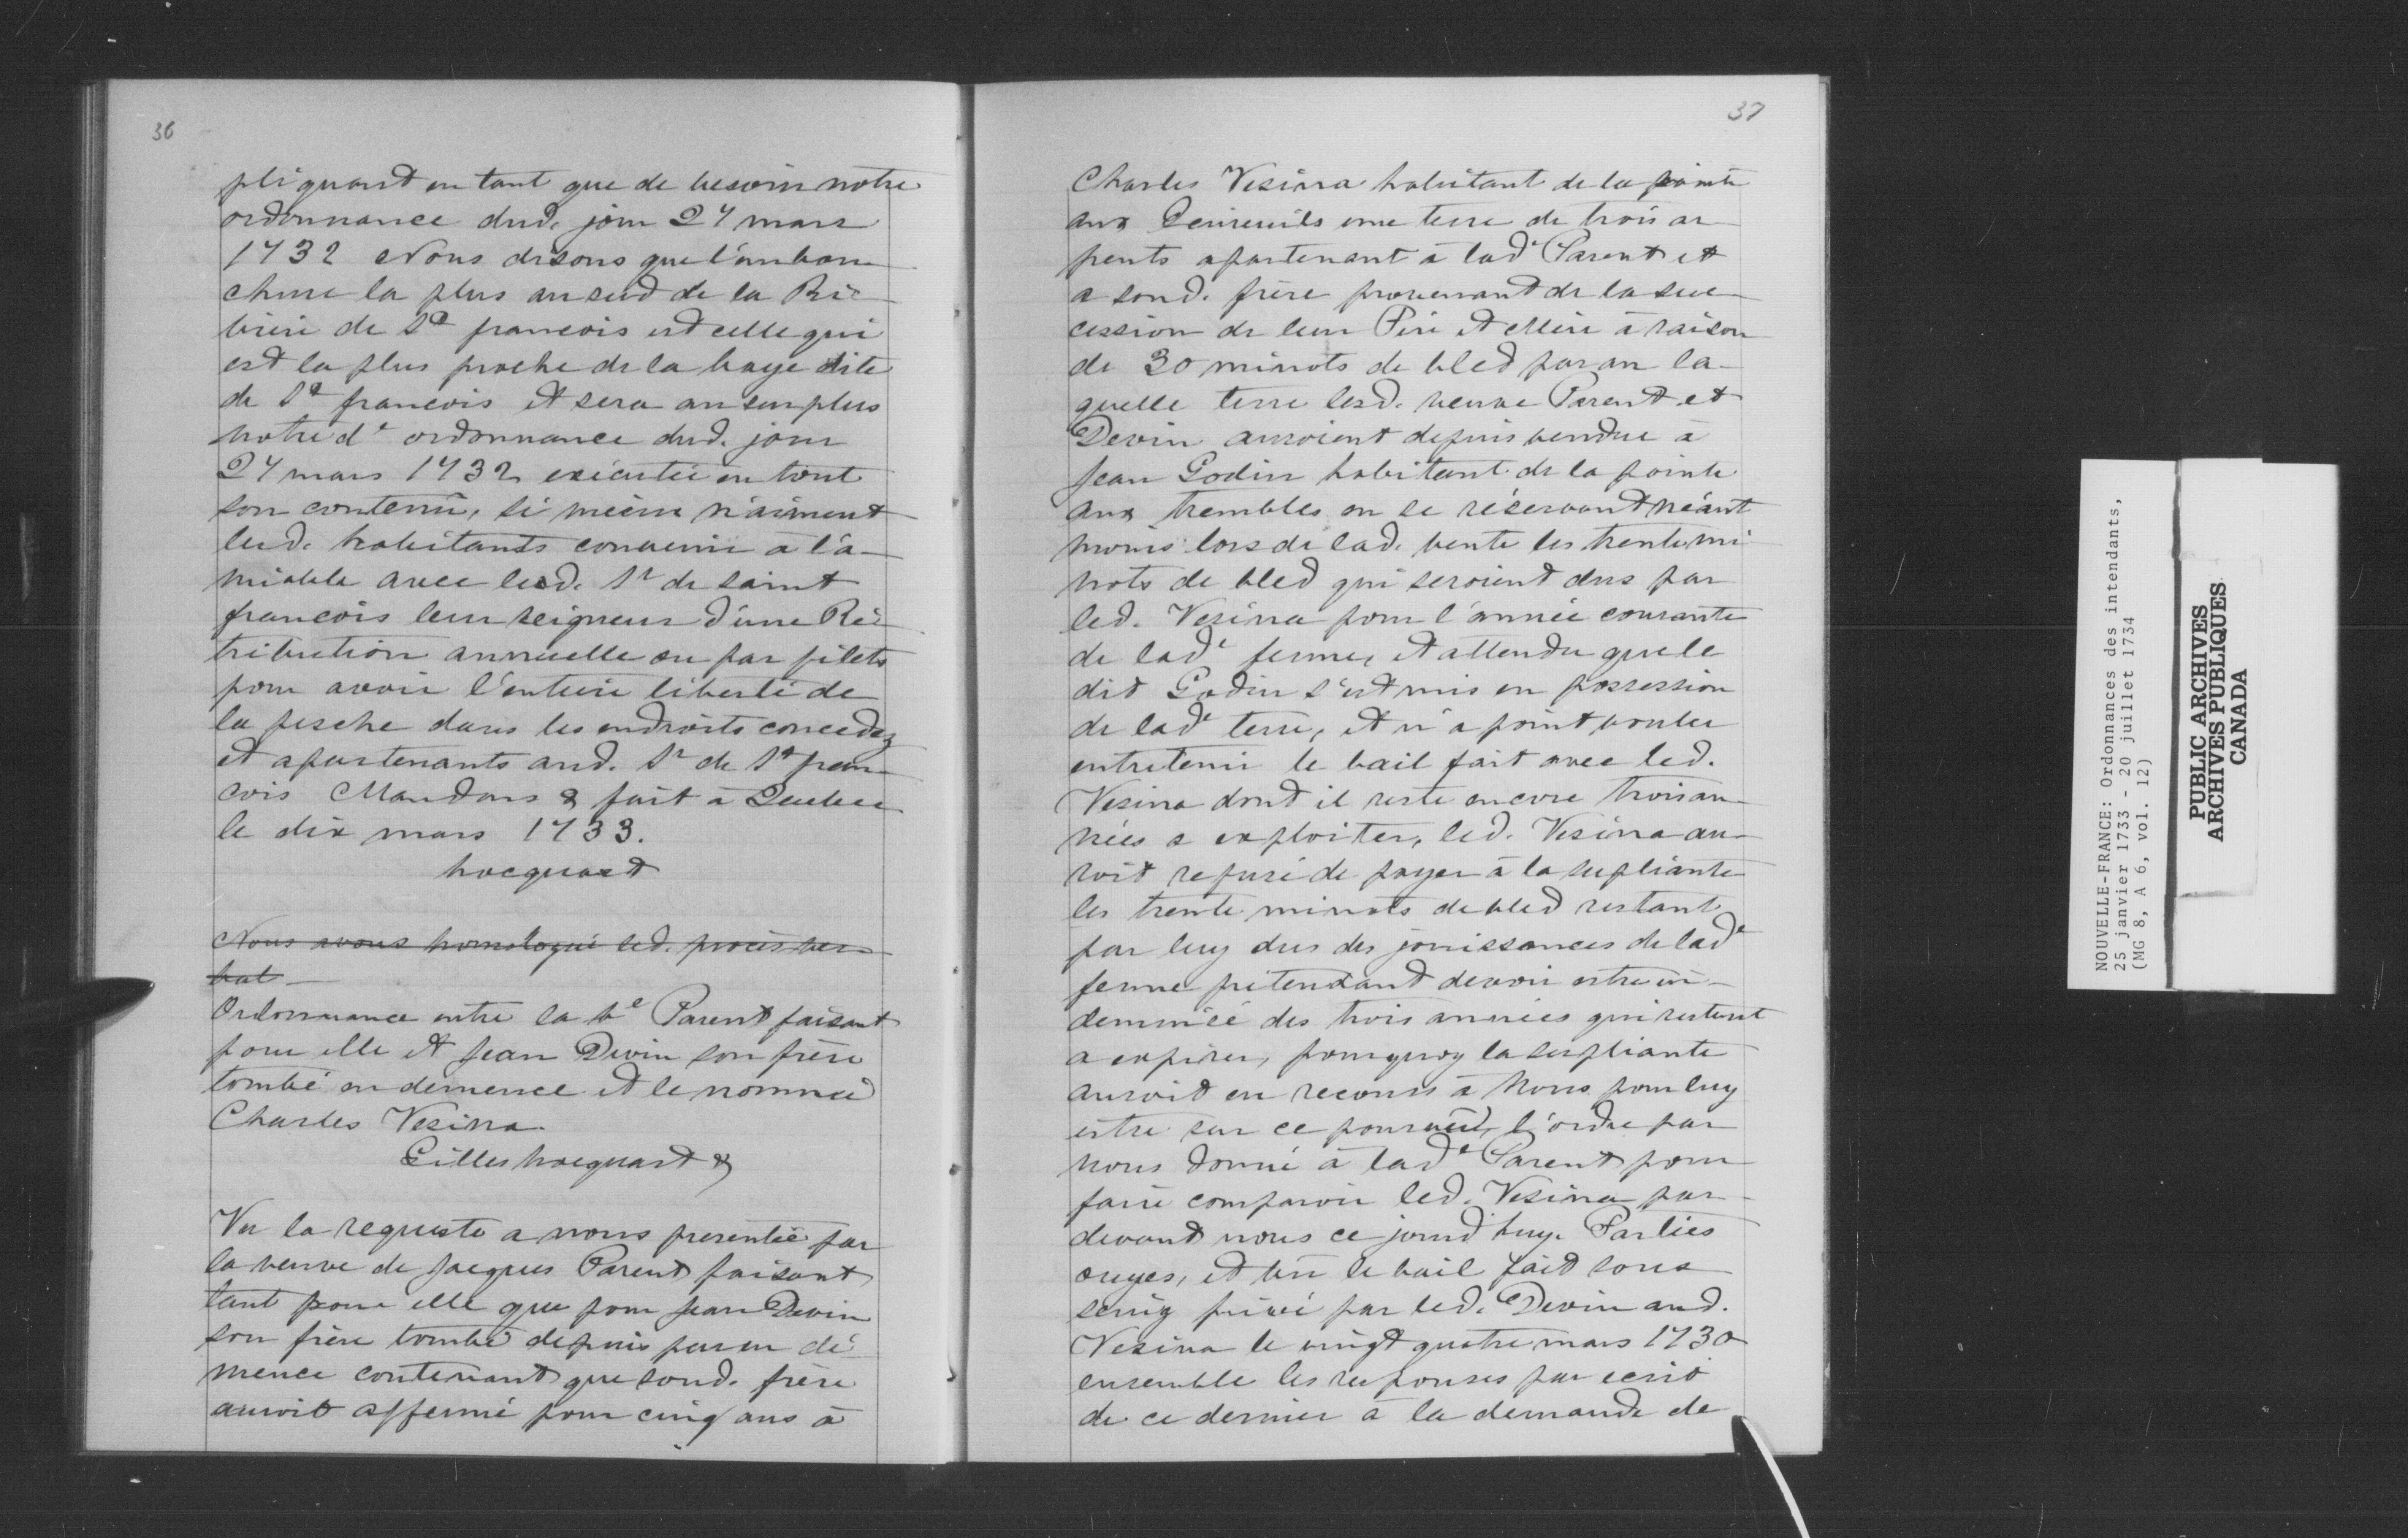 36
pliquant en tant que de besoin notre
ordonnance dud. jour 27 mars
1732 Nous disons que l'embou
chure la plus au sud de la Ri-
vière de St francois est celle qui
est la plus proche de la baye dite
de St francois et sera au surplus
notre de ordonnance dud. jour
27 mars 1732 exécutée en tout
son contenû, si mieux n'aiment
lesd. habitants convenir à l'a-
miable avec led. Sr de saint
francois leur seigneur d'une Ré-
tribution annuelle ou par filets
pour avoir l'entière liberté de
la pesche dans les endroits concedez
et apartenants aud. Sr de St fran-
cois Mandons & fait à Quebec
le dix mars 1733.
hocquart
Nous avons homologué led. procès ver-
bal
Ordonnance entre la ve Parent faisant
pour elle et Jean Devin son frère
tombé en démence et le nommé
Charles Vesina
Gilles hocquart &
Vu la requeste a nous presentée par
la veuve de Jacques Parent faisant
tant pour elle que pour Jean Devin
son frère tombé depuis peu en dé-
mence contenant que sond. frère
auroit affermé pour cinq ans à
37
Charles Vesina habitant de la pointe
aux une terre de trois ar
pents apartenant à lade Parent et
a sond. frère provenant de la suc
cession de leur Père et Mère à raison
de 30 minots de bled par an la-
quelle terre lesd. veuve Parent et
Devin auroient depuis vendue à
Jean Godin habitant de la pointe
aux trembles en se réservant néant
moins lors de lad. vente les trente mi
nots de bled qui seroient dus par
led. Vesina pour l'année courante
de lade ferme, et attendu que le
dit Godin s'est mis en possession
de lade terre, et n'a point voulu
entretenir le bail fait avec led.
Vesina dont il reste encore trois an-
nées a exploiter, led. Vesina au-
roit refusé de payer à la supliante
les trente minots de bled restant
par luy dus des jouissances de lade
ferme prétendant devoir estre in-
demnisé des trois années qui restent
a expirer, pourquoy la supliante
auroit eu recours à Nous pour luy
estre sur ce pourvû, l'ordre par
nous donné à lade Parent pour
faire comparoir led. Vesina par-
devant nous ce jourd'huy. Parties
ouyes, et vû le bail fait sous
seing privé par led. Devin aud.
Vesina le vingt quatre mars 1730
ensemble les reponses par ecrit
de ce dernier à la demande de
NOUVELLE-FRANCE: Ordonnances des intendants,
25 janvier 1733 - 20 juillet 1734
(MG 8, A 6, vol. 12)
PUBLIC ARCHIVES
ARCHIVES PUBLIQUES
CANADA